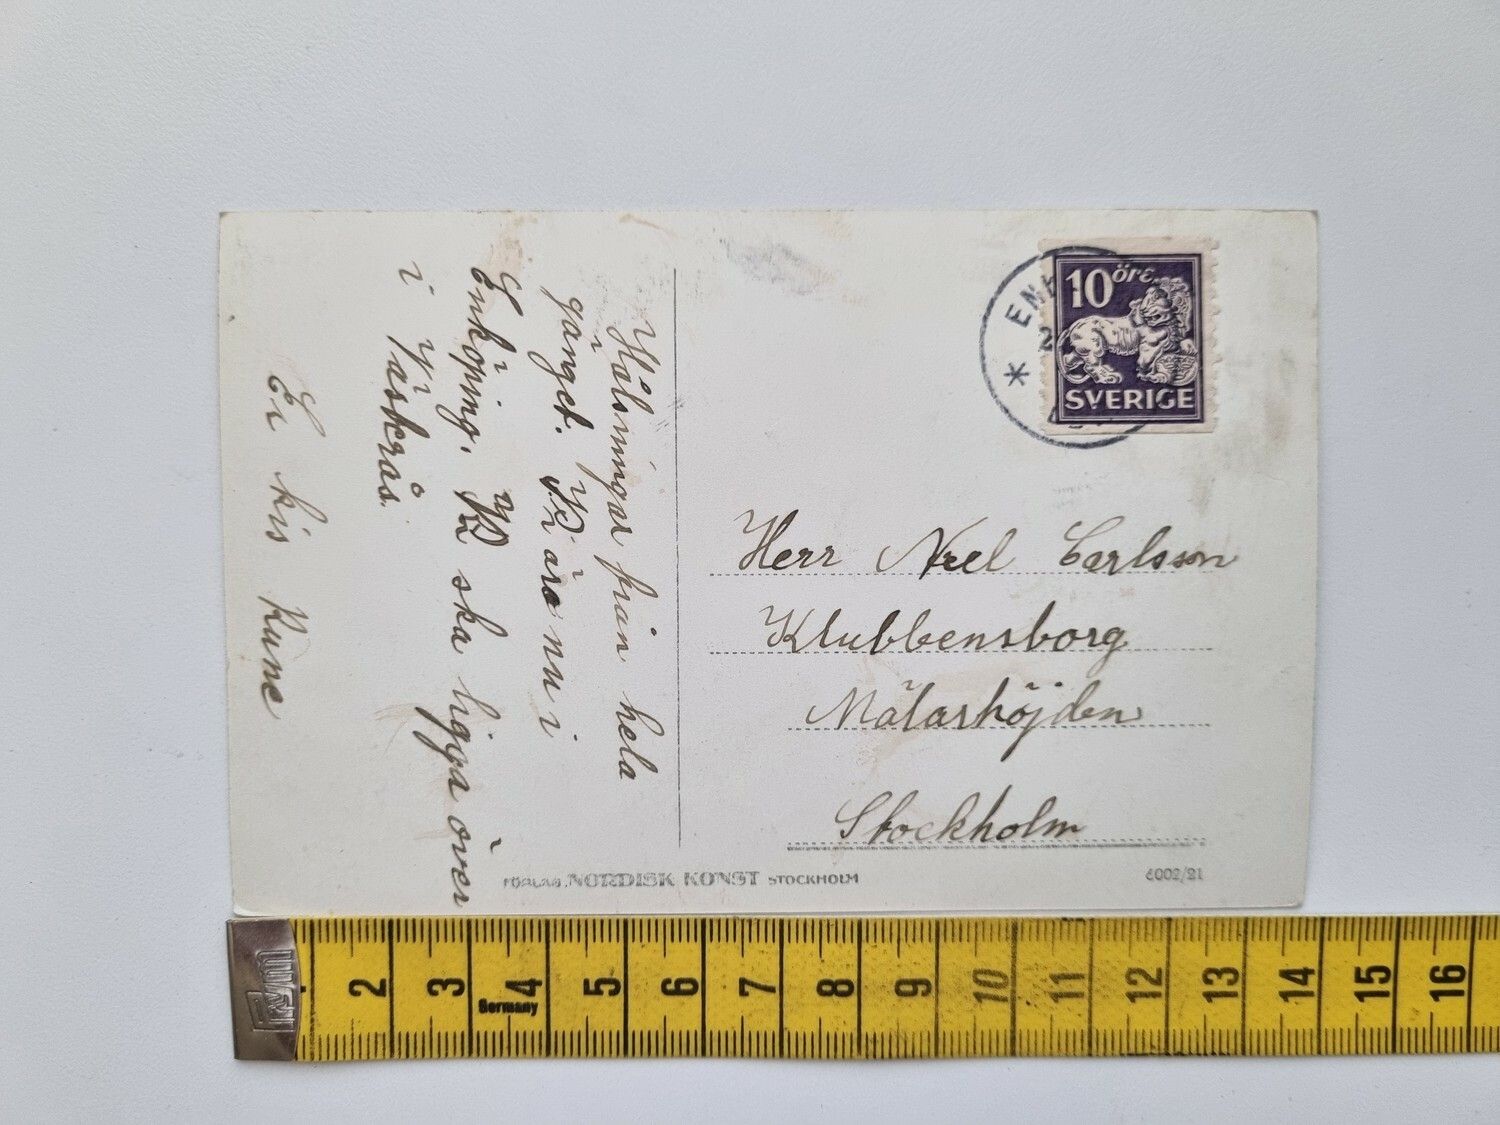 Hälsningar från hela
gänget. Vi äro nu i
Enköping. Vi ska ligga över
i Väskrås.
Er kis Rune
ENK
2
10 öre
SVERIGE
Herr Axel Carlsson
Klubbensborg
Mälarhöjden
Stockholm
FÖRLAG. NORDISK KONST STOCKHOLM
6002/21
2 3 4 5 6 7 8 9 10 11 12 13 14 15 16
Germany